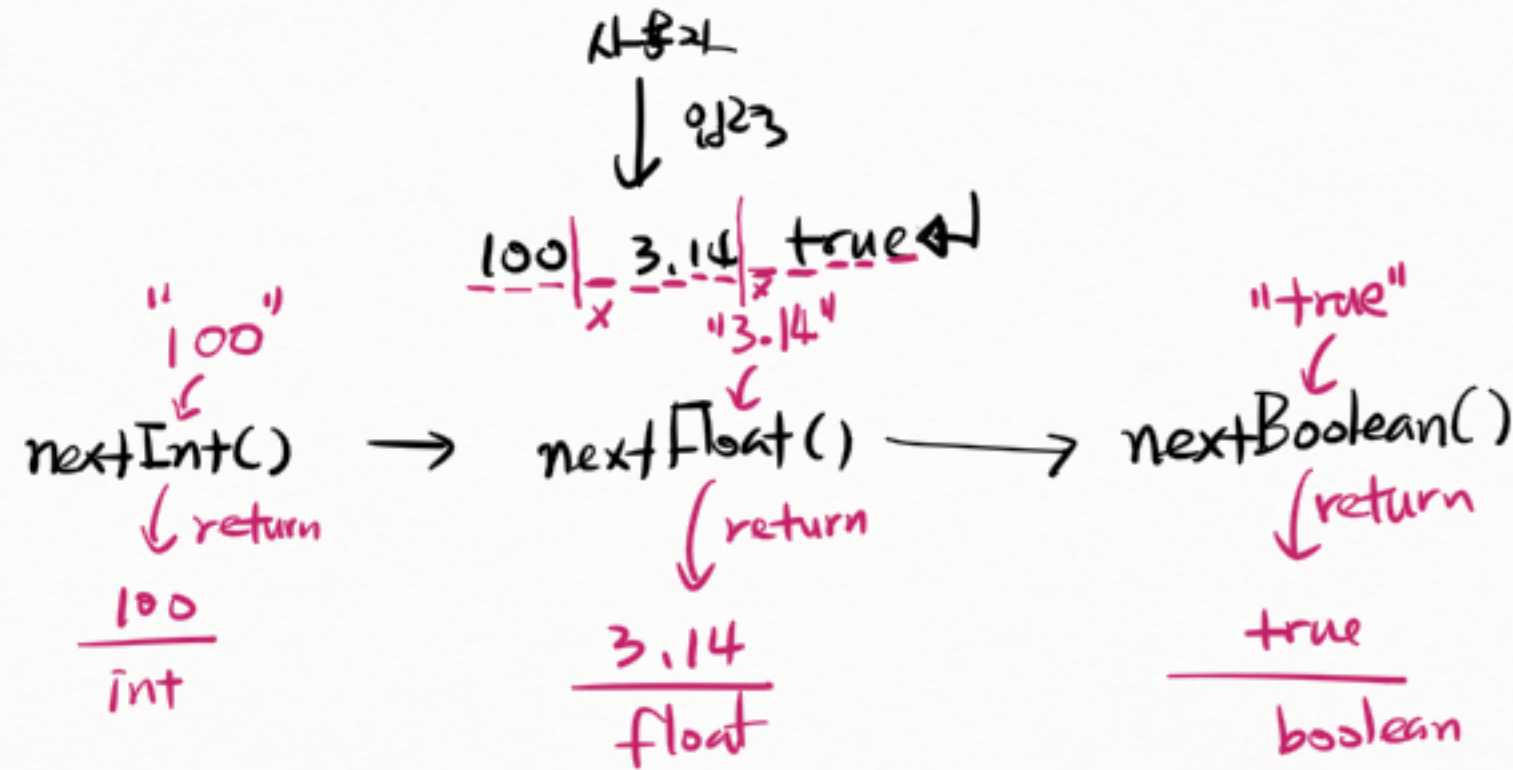 사용자
입력
100 3.14 true
x x
"100" "3.14" "true"
nextInt() → nextFloat() → nextBoolean()
return return return
100 3.14 true
int float boolean